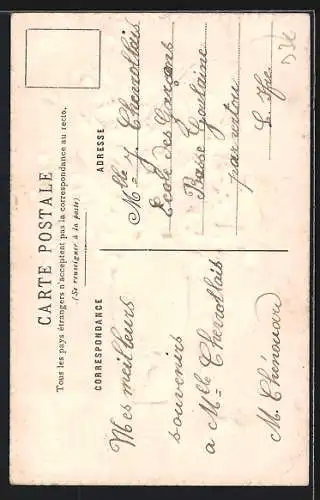 CARTE POSTALE
Tous les pays étrangers n'acceptent pas la correspondance au recto.
(Se renseigner à la poste)
CORRESPONDANCE
Mes meilleurs
souvenirs
a Melle Chevrollais
M. Thénouard
ADRESSE
Mlle J. Chevrollais
École des Garçons
Basse Goulaine
par vertou
L. Ifre
D32